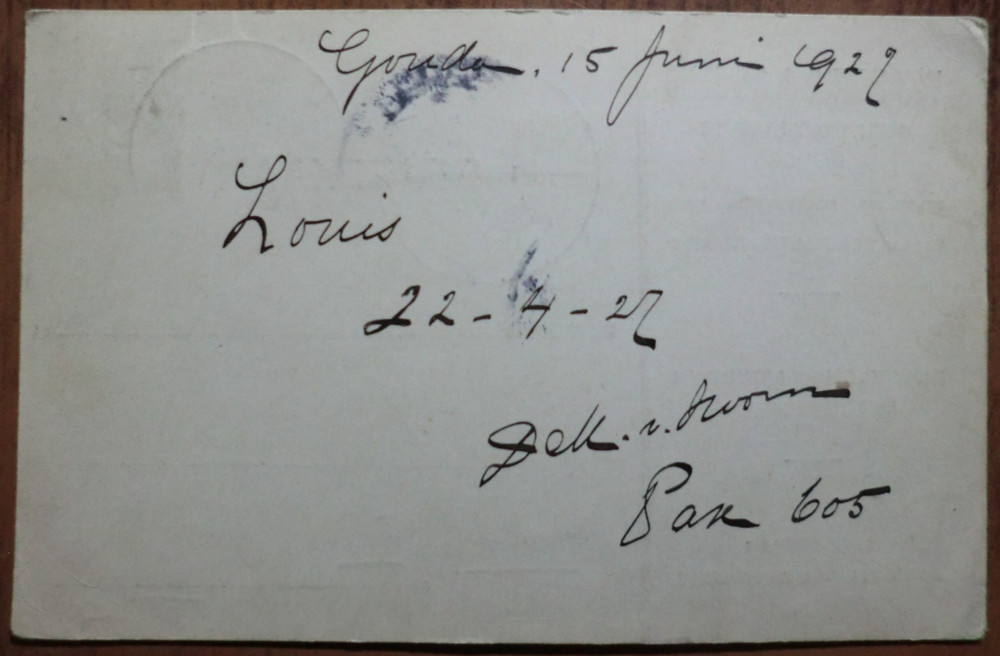 Gouda, 15 Juni 1927
Louis
22-4-27
v.
Pax 605